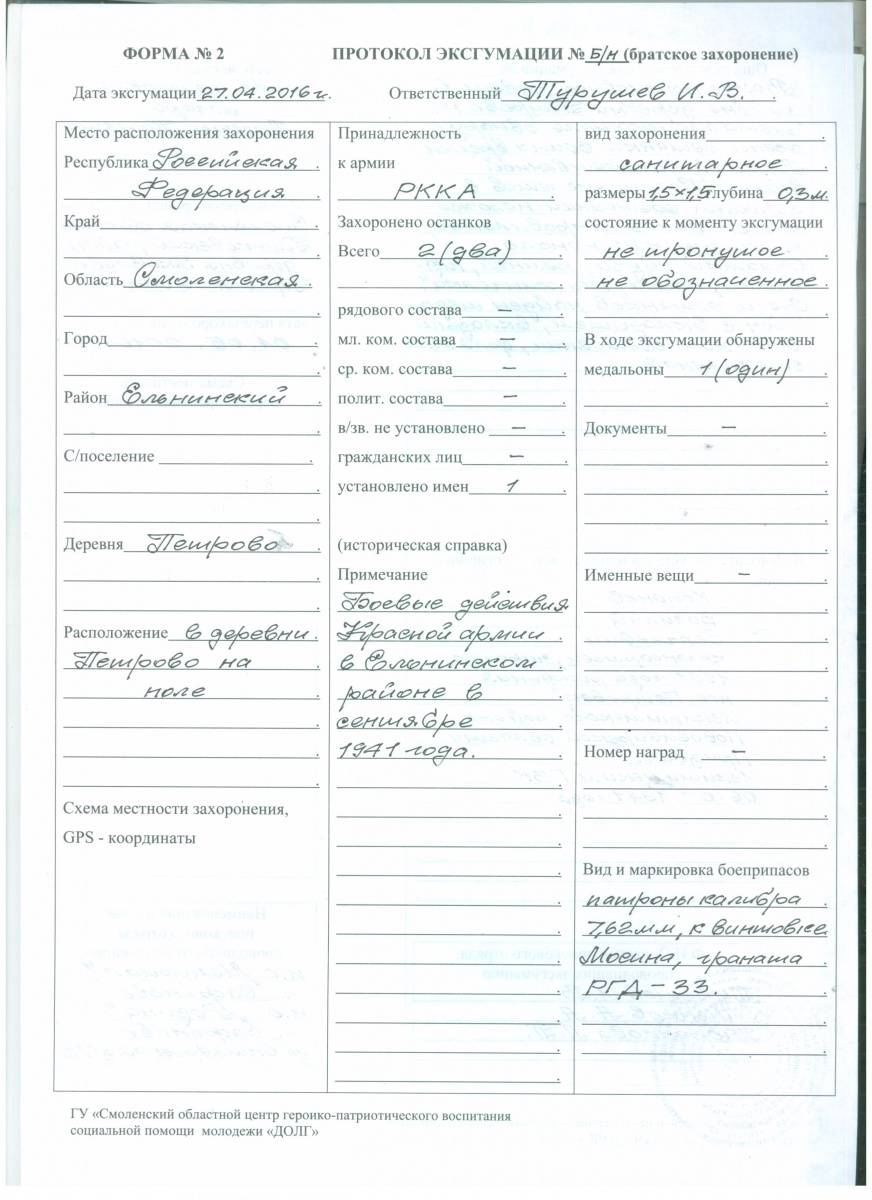 ФОРМА № 2 ПРОТОКОЛ ЭКСГУМАЦИИ № Б/Н (братское захоронение)
Дата эксгумации 27.04.2016 г. Ответственный Турушев И.В.
Место расположения захоронения
Республика Российская
Федерация
Край
Область Смоленская
Город
Район Ельнинский
С/поселение
Деревня Петрово
Расположение в деревни
Петрово на
поле
Схема местности захоронения,
GPS - координаты
Принадлежность
к армии
РККА
Захоронено останков
Всего 2 (два)
рядового состава –
мл. ком. состава –
ср. ком. состава –
полит. состава –
в/зв. не установлено –
гражданских лиц –
установлено имен 1
(историческая справка)
Примечание
Боевые действия
Красной армии
в Ельнинском
районе в
сентябре
1941 года.
вид захоронения
санитарное
размеры 1,5×1,5 глубина 0,3м.
состояние к моменту эксгумации
не тронутое
не обозначенное
В ходе эксгумации обнаружены
медальоны 1 (один)
Документы –
Именные вещи –
Номер наград –
Вид и маркировка боеприпасов
патроны калибра
7,62мм, к винтовке
Мосина, граната
РГД – 33.
ГУ «Смоленский областной центр героико-патриотического воспитания
социальной помощи молодежи «ДОЛГ»